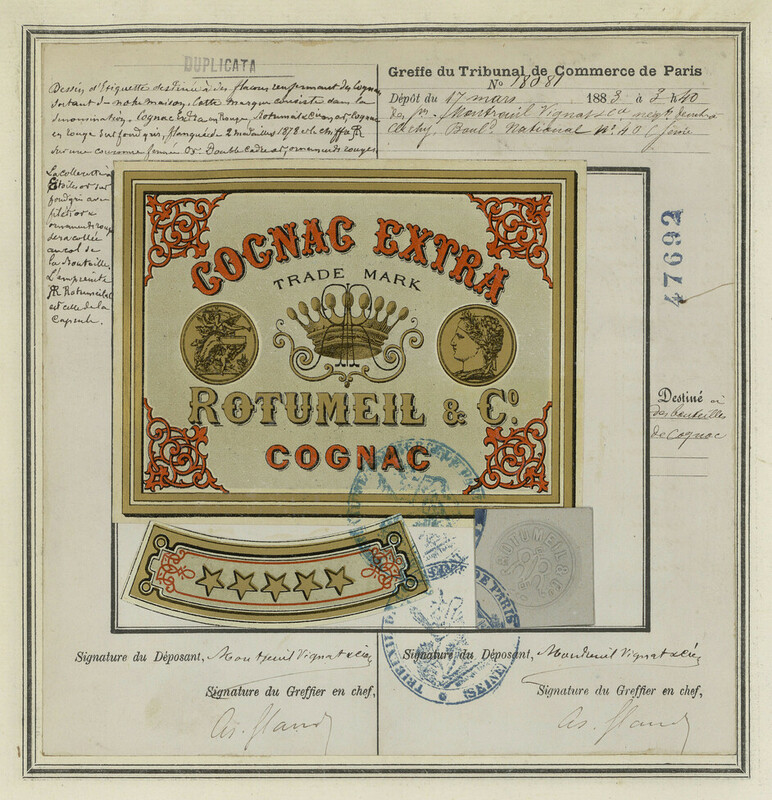 DUPLICATA
Dessin d'Etiquette destinée à des flacons renfermant des Cognacs
sortant de notre maison. Cette marque consiste dans la
dénomination. Cognac Extra en Rouge, Rotumeil & Co en or, Cognac
en rouge sur fond gris, flanquée de 2 médailles 1878 et le chiffre
sur une couronne fermée Or. Double cadre or, ornements rouges
La collerette à
Etoiles or sur
fond gris avec
filets or &
ornements rouges
sera collée
au col de
la Bouteille.
L'empreinte
Rotumeil &
est celle de la
Capsule.
Greffe du Tribunal de Commerce de Paris
No 18081
Dépôt du 17 mars 1883 à 3 h 40
Montreuil Vignat & Cie négts
Clichy, Bould National no 40 (Seine
47692
Destiné à
des bouteilles
de Cognac
COGNAC EXTRA
TRADE MARK
ROTUMEIL & Co.
COGNAC
ROTUMEIL & Co
TRIBUNAL DE
DE PARIS
Signature du Déposant, Montreuil Vignat & Cie
Signature du Greffier en chef,
Signature du Déposant, Montreuil Vignat & Cie
Signature du Greffier en chef,